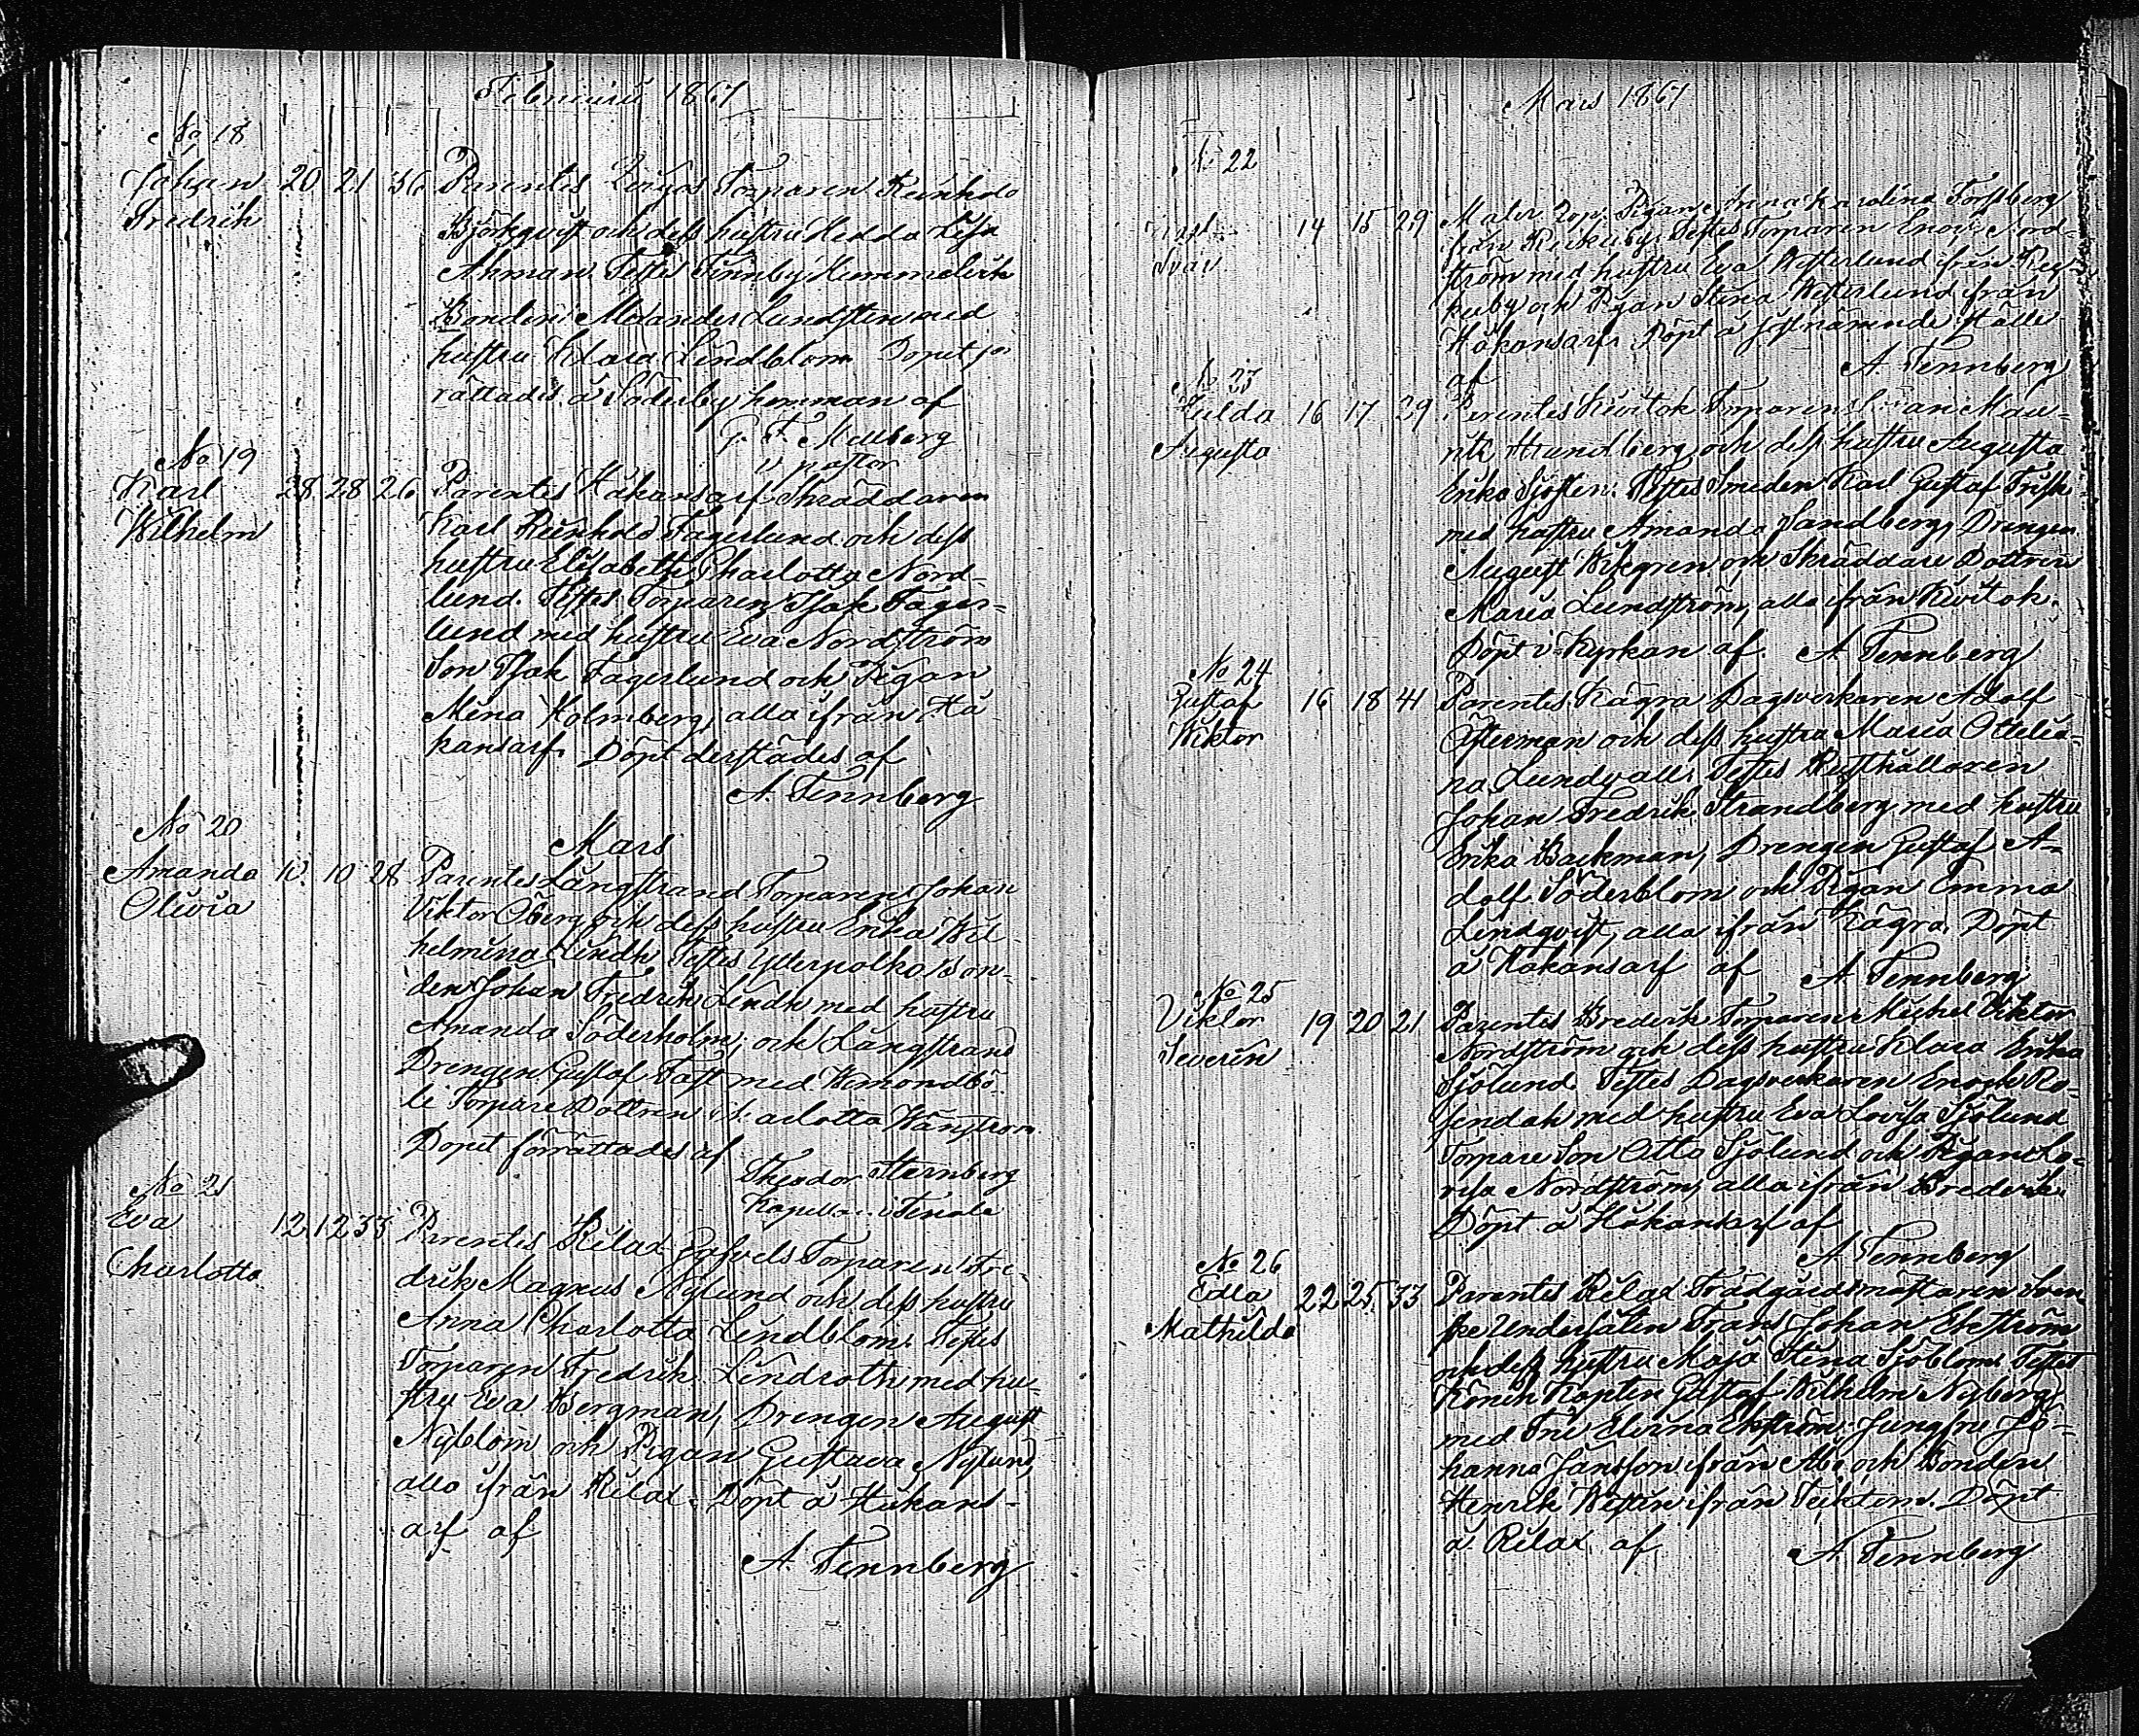 Februarii 1867
No 18
Johan 20 21 36 Parentes Torparen Reinhold
Fredrik Björkqvist och dess hustru Hedda Lisa
Åhman. Testes Finnby Hemmets
Bonden Lundsten med
hustru Klara Lindblom Dopet för
rättades å Söderby hemman af
G. F. Mellberg
v pastor
No 19
Karl 28 28 26 Parentes Håkansarf Skräddaren
Wilhelm Karl Reinhold Fagerlund och dess
hustru Elisabeth Charlotta Nord-
lund. Testes Torparen Isak Fager-
lund med hustru Eva Nordström
Son Isak Fagerlund och Pigan
Mina Holmberg, alla ifrån Hå
kansarf. Döpt derstädes af
A. Tennberg
No 20
Mars
Amanda 10 10 28 Parentes Långstrand Torparen Johan
Olivia Viktor Öberg och dess hustru Erika Wil-
helmina Lindh Testes Ytterpolka Bon-
den Johan Fredrik Lindh med hustru
Amanda Söderholm, och Långstrand
Drengen Gustaf Fast med Wemondbö-
le Torpare Dottren Charlotta Wänström
Dopet förrättades af
Theodor Sternberg
Kapellan i Tenala
No 21
Eva 12 12 33 Parentes Rilax Torparen Fre-
Charlotta drik Magnus Nylund och dess hustru
Anna Charlotta Lindblom. Testes
Torparen Fredrik Lindroth med hu-
stru Eva Bergman, Drengen August
Nyblom och Pigan Gustava Nylund,
alla ifrån Rilax. Döpt å Håkans-
arf af
A. Tennberg
Mars 1867
No 22
14 15 29 Mater Pigan Anna Karolina Forsberg
Ivar från Testes Torparen Enok Nord-
ström med hustru Eva Westerlund ifrån
kuby och Pigan Stina Westerlund från
Håkansarf. Döpt å sistnämnde ställe
af A. Tennberg
No 23
Hulda 16 17 29 Parentes Kivitok Torparen Mau-
Augusta ritz Strandberg och dess hustru Augusta
Erika Sjösten. Testes Smeden Karl Gustaf Frisk
med hustru Amanda Sandberg, Drengen
August Wikgren och Skräddare Dottren
Maria Lundström, alla ifrån Kivitok.
Döpt i Kyrkan af A. Tennberg
No 24
Gustaf 16 18 41 Parentes Kägra Dagsverkaren Adolf
Wiktor Österman och dess hustru Maria Ottelia-
na Lundvall. Testes Rusthållaren
Johan Fredrik Strandberg med hustru
Erika Backman, Drengen Gustaf A-
dolf Söderblom och Pigan Emma
Lindqvist, alla ifrån Kägra. Döpt
å Håkansarf af A. Tennberg
No 25
Viktor 19 20 21 Parentes Bredvik Torparen Michel Viktor
Severin Nordström och dess hustru Klara Erika
Sjölund. Testes Dagsverkaren Enoch Ro-
sendah med hustru Eva Lovisa Sjölund
Torpare Son Otto Sjölund och Pigan Lo-
visa Nordström, alla ifrån Bredvik.
Döpt å Håkansarf af
A. Tennberg
No 26
Edla 22 25 33 Parentes Rilax Trädgårdsmästaren Sven-
Mathilda ske Undersåten Frans Johan Ekström
och dess hustru Maja Stina Sjöblom. Testes
Kapten Gustaf Wilhelm Nyberg
med Fru Elvina Ekström, Jungfru Jo-
hanna Jansson ifrån Åbo och Bonden
Henrik Westén ifrån Teiktom. Döpt
å Rilax af A. Tennberg